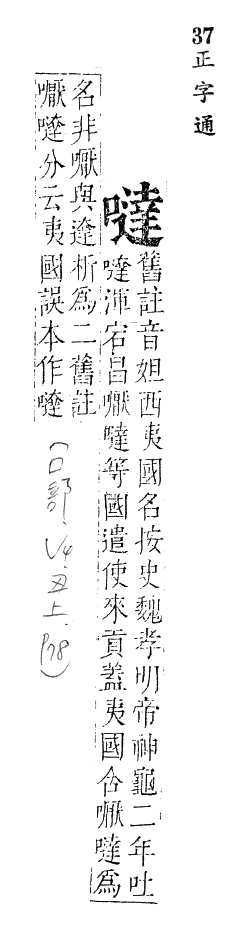 37正字通
噠
舊註音妲西夷國名按史魏孝明帝神龜二年吐
噠渾宕昌嚈噠等國遣使來貢蓋夷國合嚈噠為
名非嚈與達析為二舊註
嚈噠分云夷國誤本作噠
(口部.V4.丑上.P78)